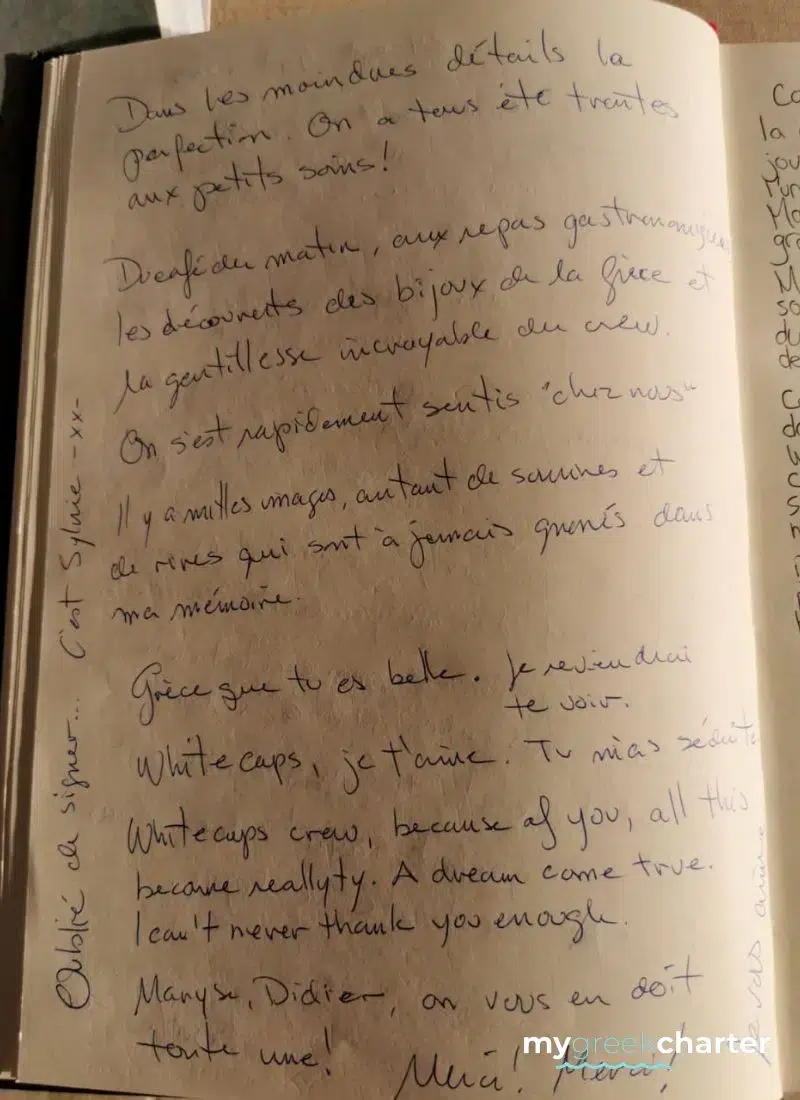 Dans les moindres détails la
perfection. On a tous été traités
aux petits soins!
Du café du matin, aux repas gastronomiques
les découverts des bijoux de la Grèce et
la gentillesse incroyable du crew.
On s'est rapidement sentis "chez nous"
Il y a milles images, autant de sourires et
de rires qui sont à jamais gravés dans
ma mémoire.
Grèce que tu es belle. Je reviendrai
te voir.
Whitecaps, je t'aime. Tu m'as séduite
Whitecaps crew, because of you, all this
became reallyty. A dream come true.
I can't never thank you enough.
Maryse, Didier, on vous en doit
toute une!
Merci! Merci!
Oublié de signer... C'est Sylvie -xx-
mygreekcharter
Co
la
jou
Ma
gra
M
so
du
de